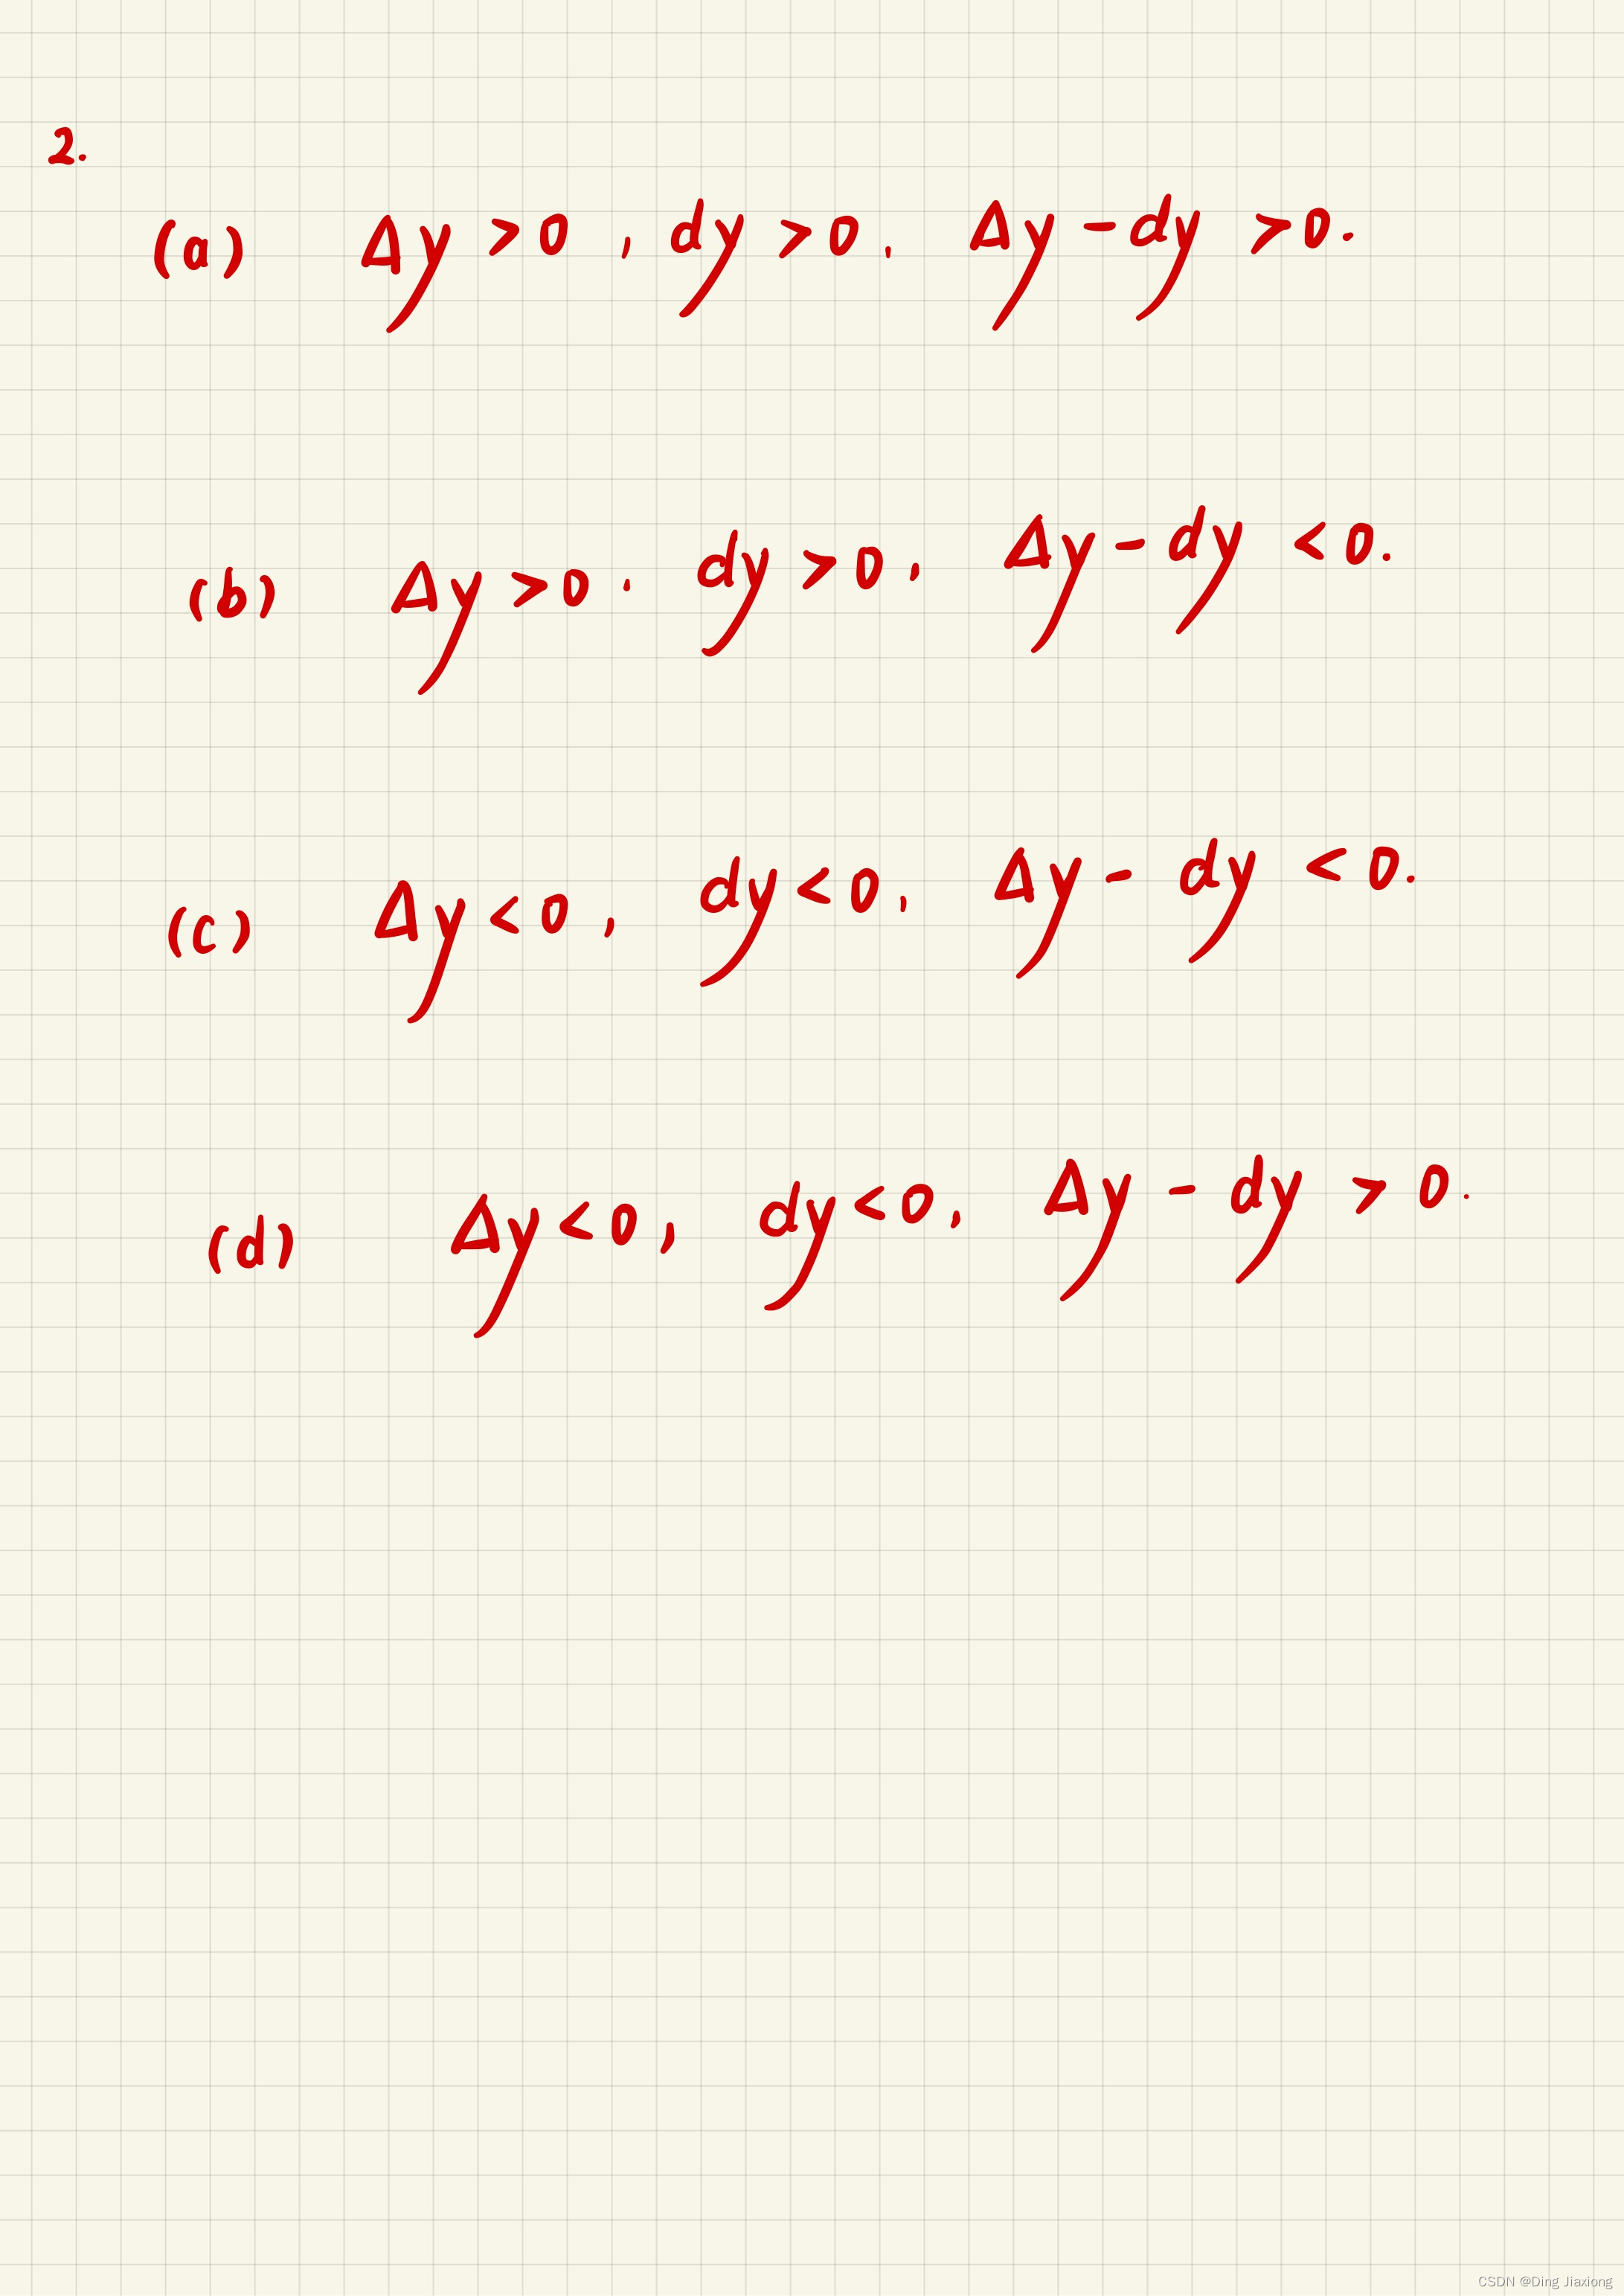 2.
(a) Δy > 0 , dy > 0 , Δy - dy > 0.
(b) Δy > 0 , dy > 0 , Δy - dy < 0.
(c) Δy < 0 , dy < 0 , Δy - dy < 0.
(d) Δy < 0 , dy < 0 , Δy - dy > 0.
CSDN @Ding Jiaxiong